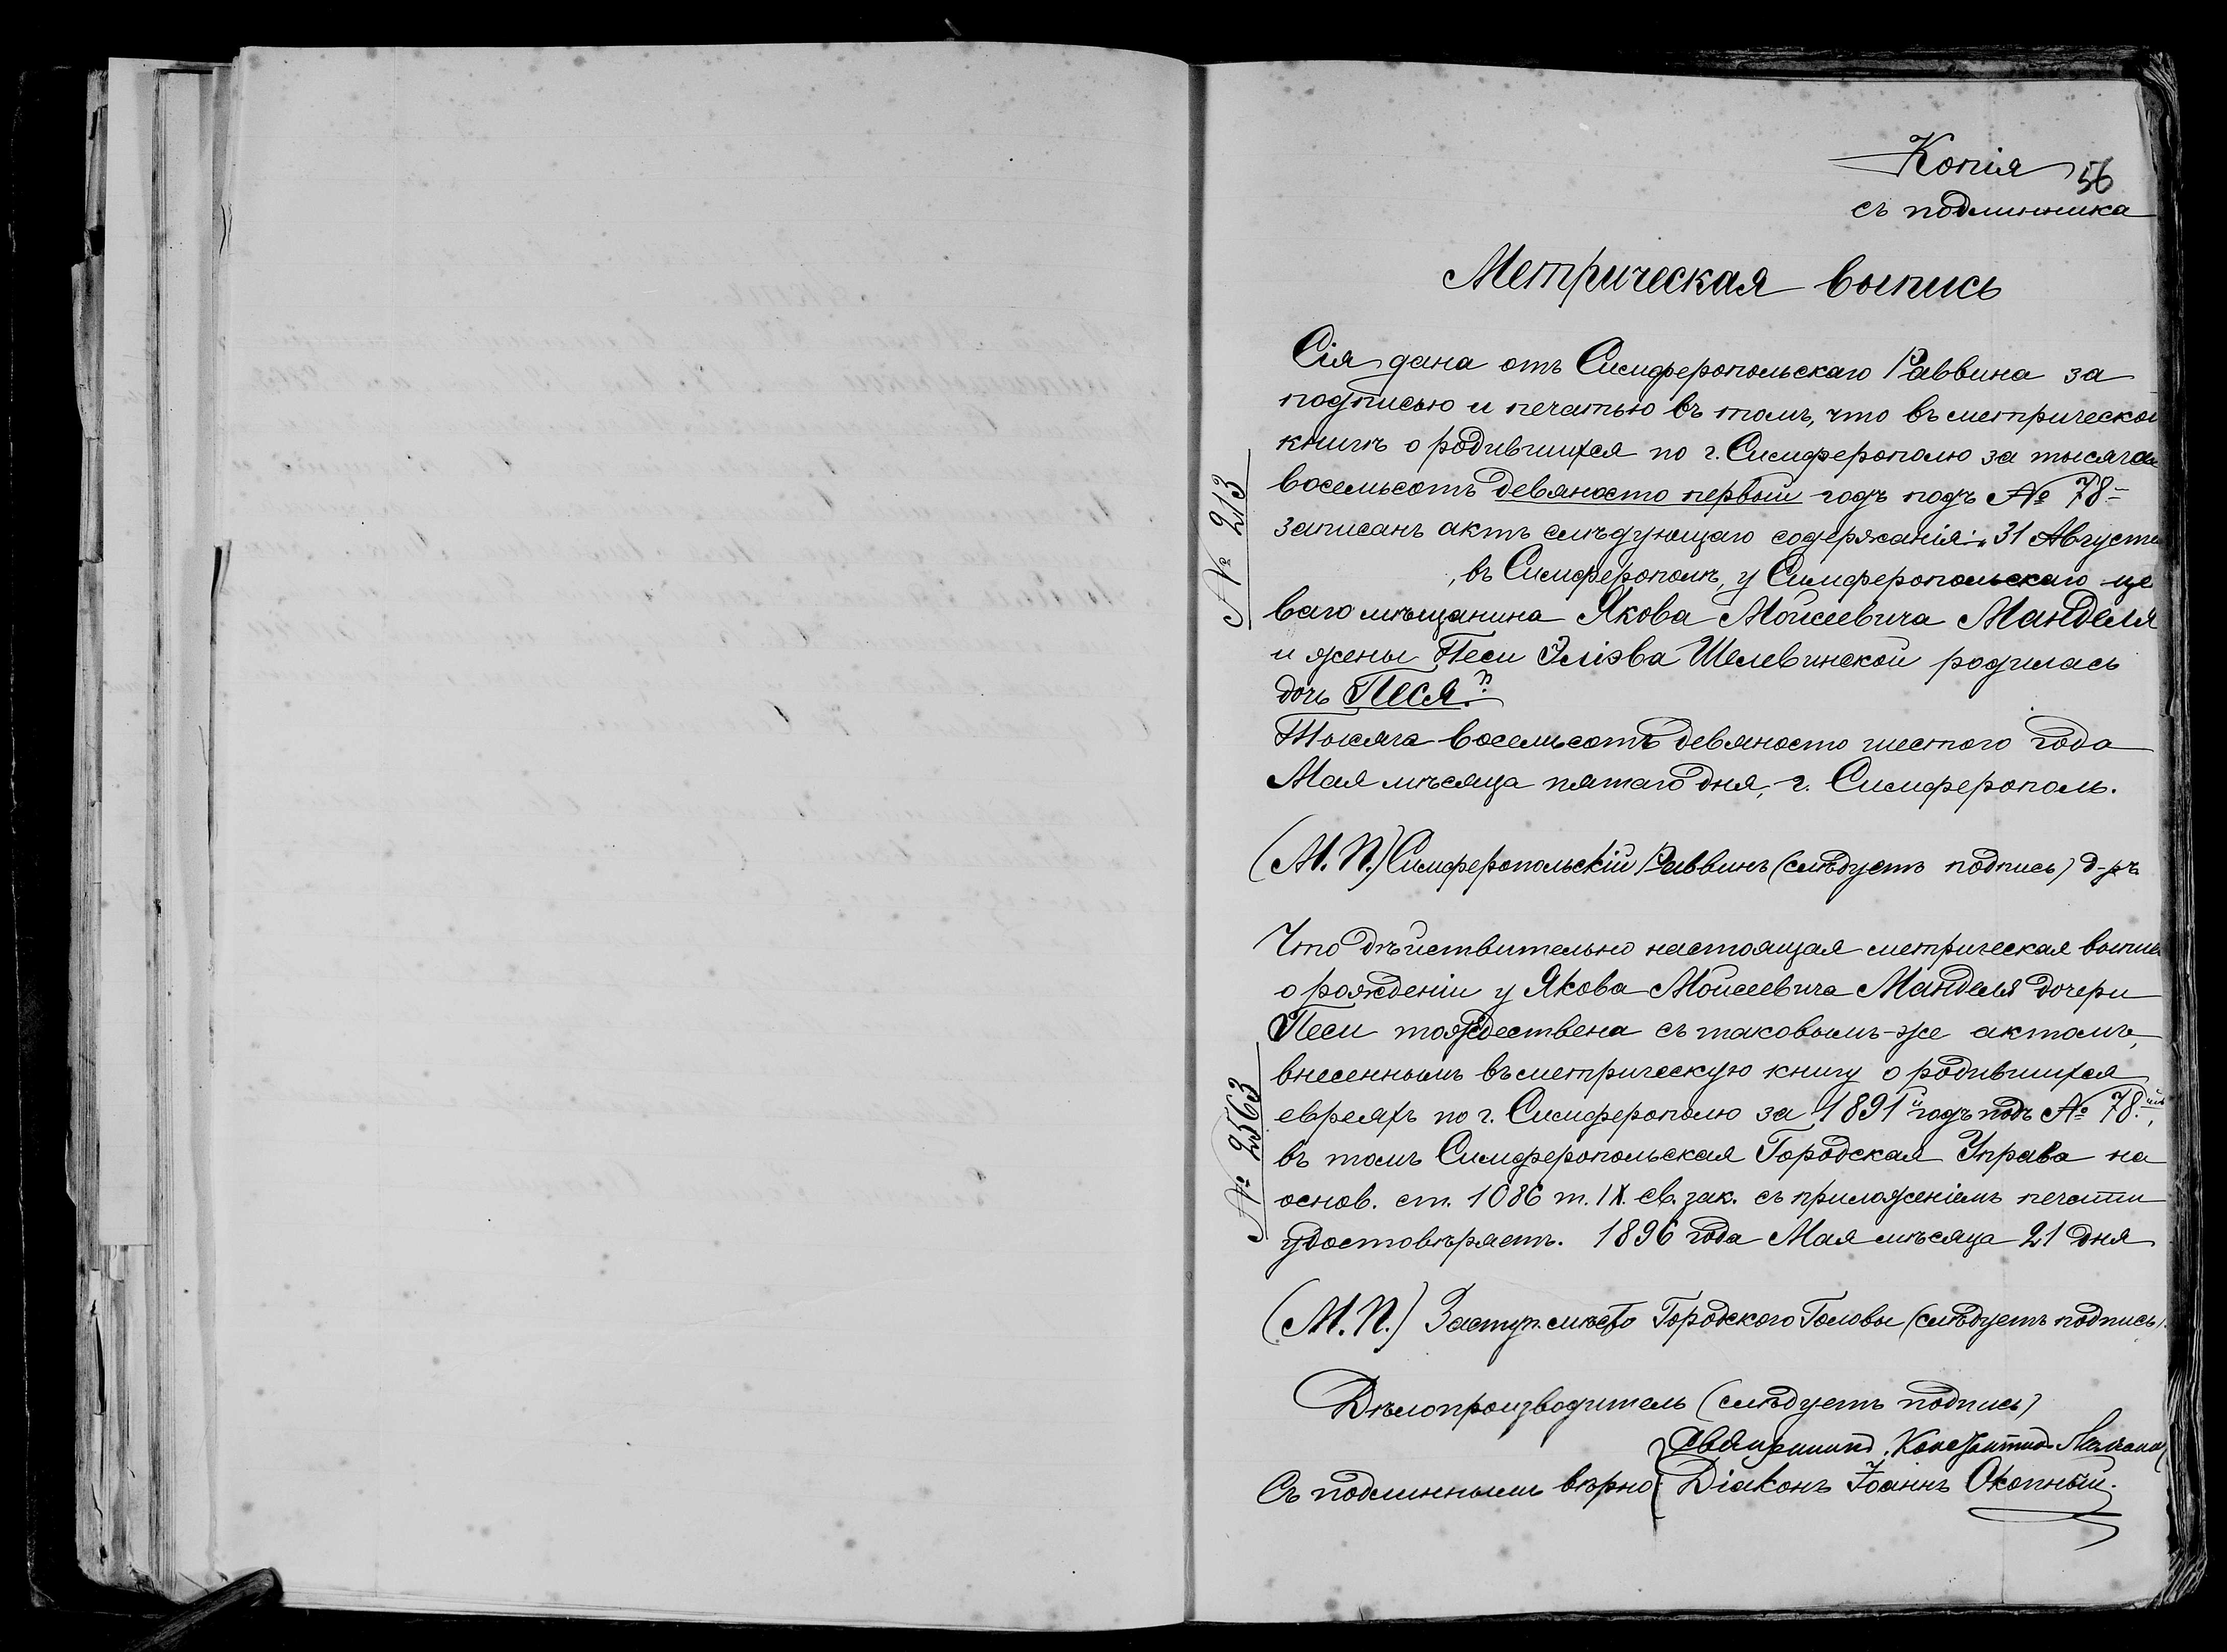 Копія
56
съ подлинника
Метрическая выпись
Сія дана отъ Симферопольскаго Раввина за
подписью и печатью въ томъ, что въ метрической
книгѣ о родившихся по г. Симферополю за тысяча
восемьсотъ девяносто первый годъ подъ № 78-
записанъ актъ слѣдующаго содержанія: „31 Августа
, въ Симферополѣ, у Симферопольскаго це
ваго мѣщанина Якова Моисеевича Манделя
и жены Песи Эліева Шелевинской родилась
дочь Песя."
Тысяча восемьсотъ девяносто шестого года
Мая мѣсяца пятаго дня, г. Симферополь.
(М.П.) Симферопольскій Раввинъ (слѣдуетъ подпись) д-ръ
№ 213
Что дѣйствительно настоящая метрическая выпись
о рожденіи у Якова Моисеевича Манделя дочери
Песи тождествена съ таковымъ-же актомъ,
внесеннымъ въ метрическую книгу о родившихся
евреяхъ по г. Симферополю за 1891й годъ подъ № 78.мъ,
въ томъ Симферопольская Городская Управа на
основ. ст. 1086 т. IX. св. зак. съ приложеніемъ печати
удостовѣряетъ. 1896 года Мая мѣсяца 21 дня
№ 2563
(М.П.) Заступ. мѣсто Городского Головы (слѣдуетъ подпись).
Дѣлопроизводитель (слѣдуетъ подпись)
Константинъ
Съ подлиннымъ вѣрно: Діаконъ Іоаннъ Окопный.